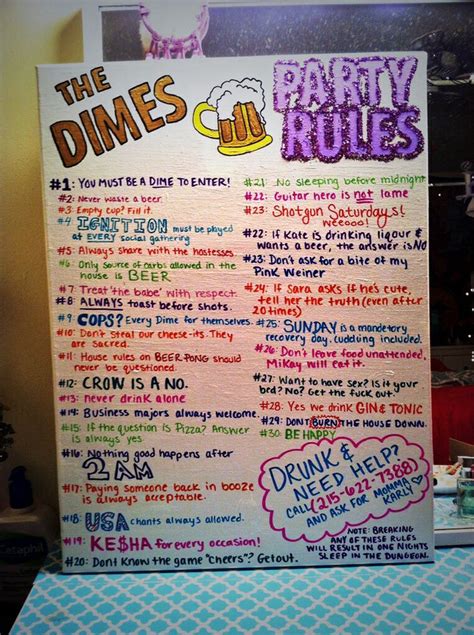 THE
DIMES
PARTY
RULES
#1: YOU MUST BE A DIME TO ENTER!
#2: Never waste a beer.
#3: Empty cup? Fill it.
#4 IGNITION must be played
at EVERY social gathering
#5: Always share with the hostesses.
#6: Only source of carbs allowed in the
house is BEER
#7: Treat 'the babe' with respect.
#8: ALWAYS toast before shots.
#9: COPS? Every Dime for themselves.
#10: Don't steal our cheese-its. They
are sacred.
#11: House rules on BEER PONG should
never be questioned.
#12: CROW IS A NO.
#13: never drink alone
#14: Business majors always welcome.
#15: If the question is Pizza? Answer
is always yes
#16: Nothing good happens after
2AM
#17: Paying someone back in booze
is always acceptable.
#18: USA chants always allowed.
#19: KE$HA for every occasion!
#20: Dont Know the game "cheers"? Get out.
#21: No sleeping before midnight
#22: Guitar hero is not lame
#23: Shotgun Saturdays!
weeooo!
#22: If Kate is drinking liqour & wants
a beer, the answer is NO
#23: Don't ask for a bite of my
Pink Weiner
#24: If Sara asks if he's cute,
tell her the truth (even after
20 times)
#25: SUNDAY is a mandetory
recovery day. cudding included.
#26: Dont leave food unattended.
Mikay will eat it.
#27: Want to have sex? Is it your
bed? No? Get the fuck out.
#28: Yes we drink GIN & TONIC
#29: DONT BURN THE HOUSE DOWN.
#30: BE HAPPY
DRUNK &
NEED HELP?
CALL (215-622-7388)
AND ASK FOR MOMMA
KARLY
NOTE: BREAKING
ANY OF THESE RULES
WILL RESULT IN ONE NIGHTS
SLEEP IN THE DUNGEON.
Cetaphil